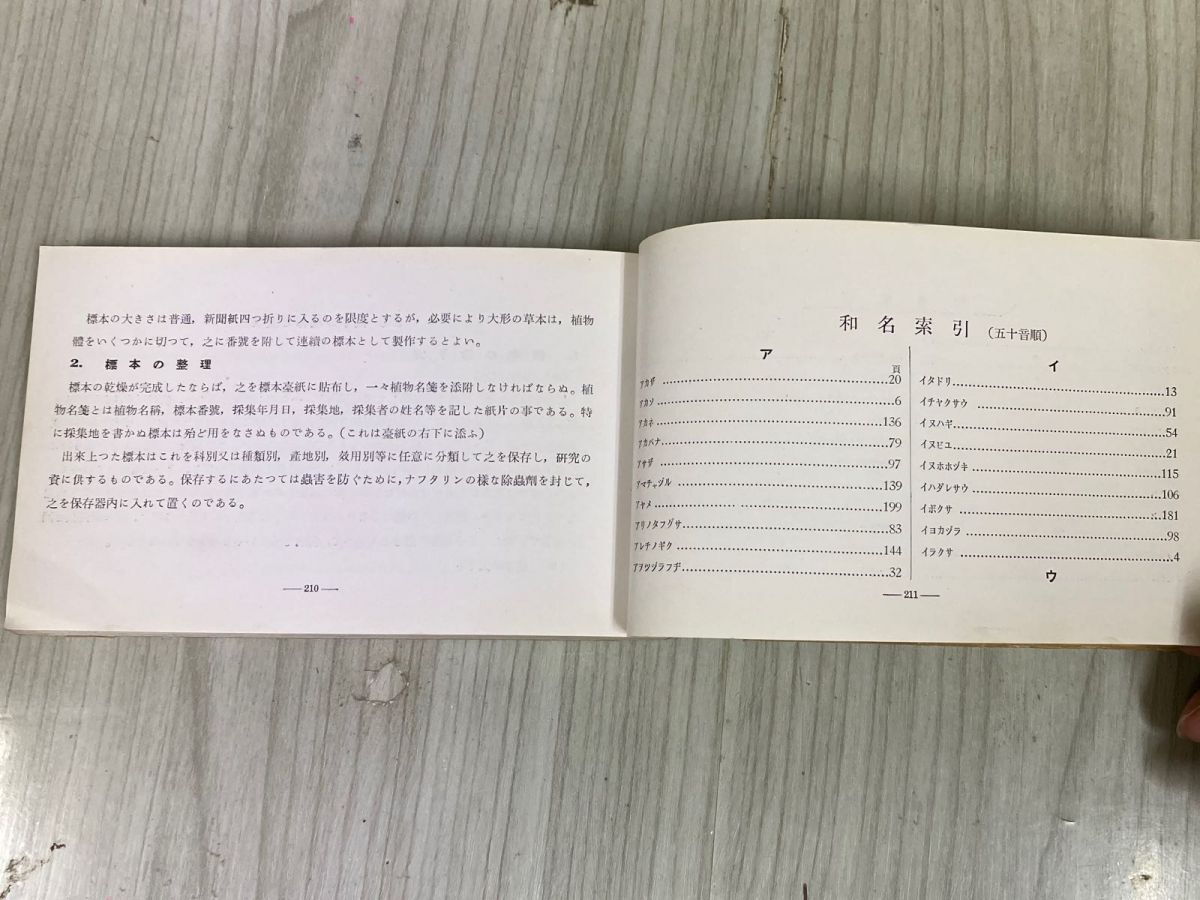 標本の大きさは普通，新聞紙四つ折りに入るのを限度とするが，必要により大形の草本は，植物
體をいくつかに切つて，之に番號を附して連續の標本として製作するとよい。
2. 標本の整理
標本の乾燥が完成したならば，之を標本臺紙に貼布し，一々植物名箋を添附しなければならぬ。植
物名箋とは植物名稱，標本番號，採集年月日，採集地，採集者の姓名等を記した紙片の事である。特
に採集地を書かぬ標本は殆ど用をなさぬものである。（これは臺紙の右下に添ふ）
出來上つた標本はこれを科別又は種類別，產地別，效用別等に任意に分類して之を保存し，硏究の
資に供するものである。保存するにあたつては蟲害を防ぐために，ナフタリンの樣な除蟲劑を封じて，
之を保存器內に入れて置くのである。
—210—
和名索引（五十音順）
ア
頁
アカザ……20
アカソ……6
アカネ……136
アカバナ……79
アサザ……97
アマチャヅル……139
アヤメ……199
アリノタフグサ……83
アレチノギク……144
アヲツヅラフヂ……32
イ
イタドリ……13
イチヤクサウ……91
イヌハギ……54
イヌビユ……21
イヌホホヅキ……115
イハダレサウ……106
イボクサ……181
イヨカヅラ……98
イラクサ……4
ウ
—211—